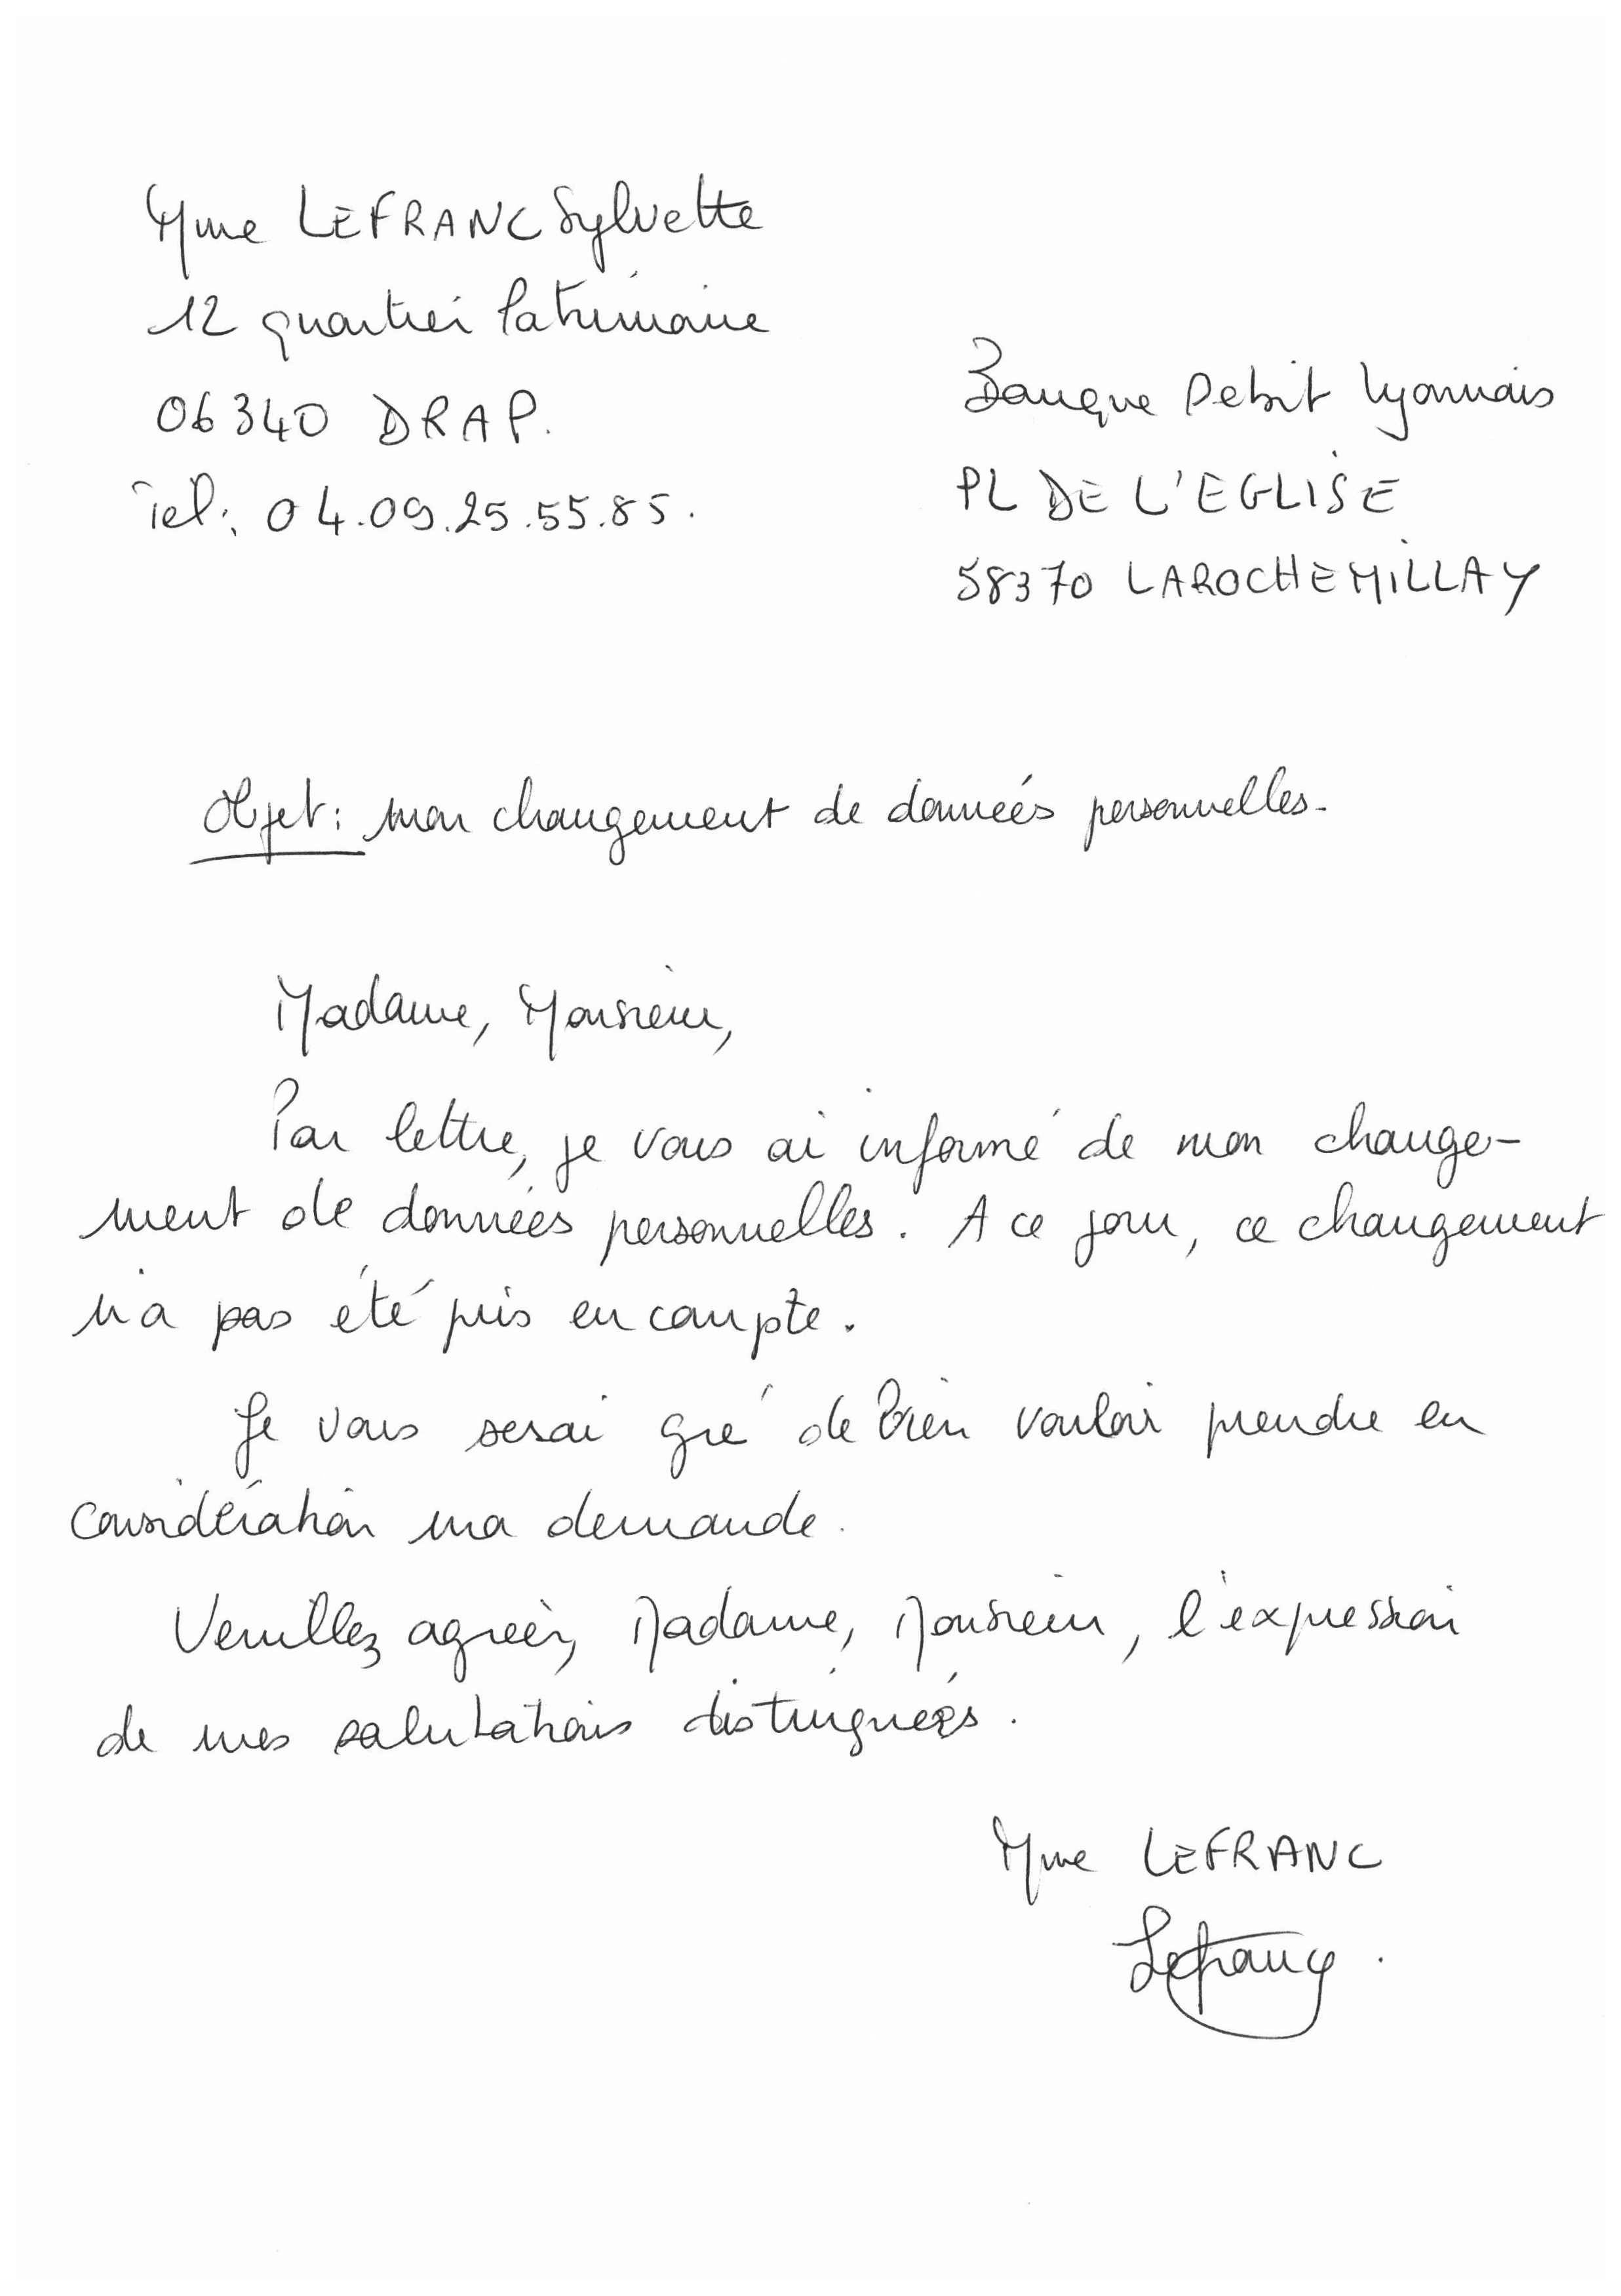 Mme LEFRANC Sylvette
12 quartier Patrimoine
06340 DRAP.
Tel: 04.09.25.55.85.
Banque Debit Lyonnais
PL DE L'EGLISE
58370 LAROCHEMILLAY
Objet: mon changement de données personnelles.
Madame, Monsieur,
Par lettre, je vous ai informé de mon change-
ment de données personnelles. A ce jour, ce changement
n'a pas été pris en compte.
Je vous serai gré de bien vouloir prendre en
considération ma demande.
Veuillez agréer, Madame, Monsieur, l'expression
de mes salutations distinguées.
Mme LEFRANC
Lefranc.